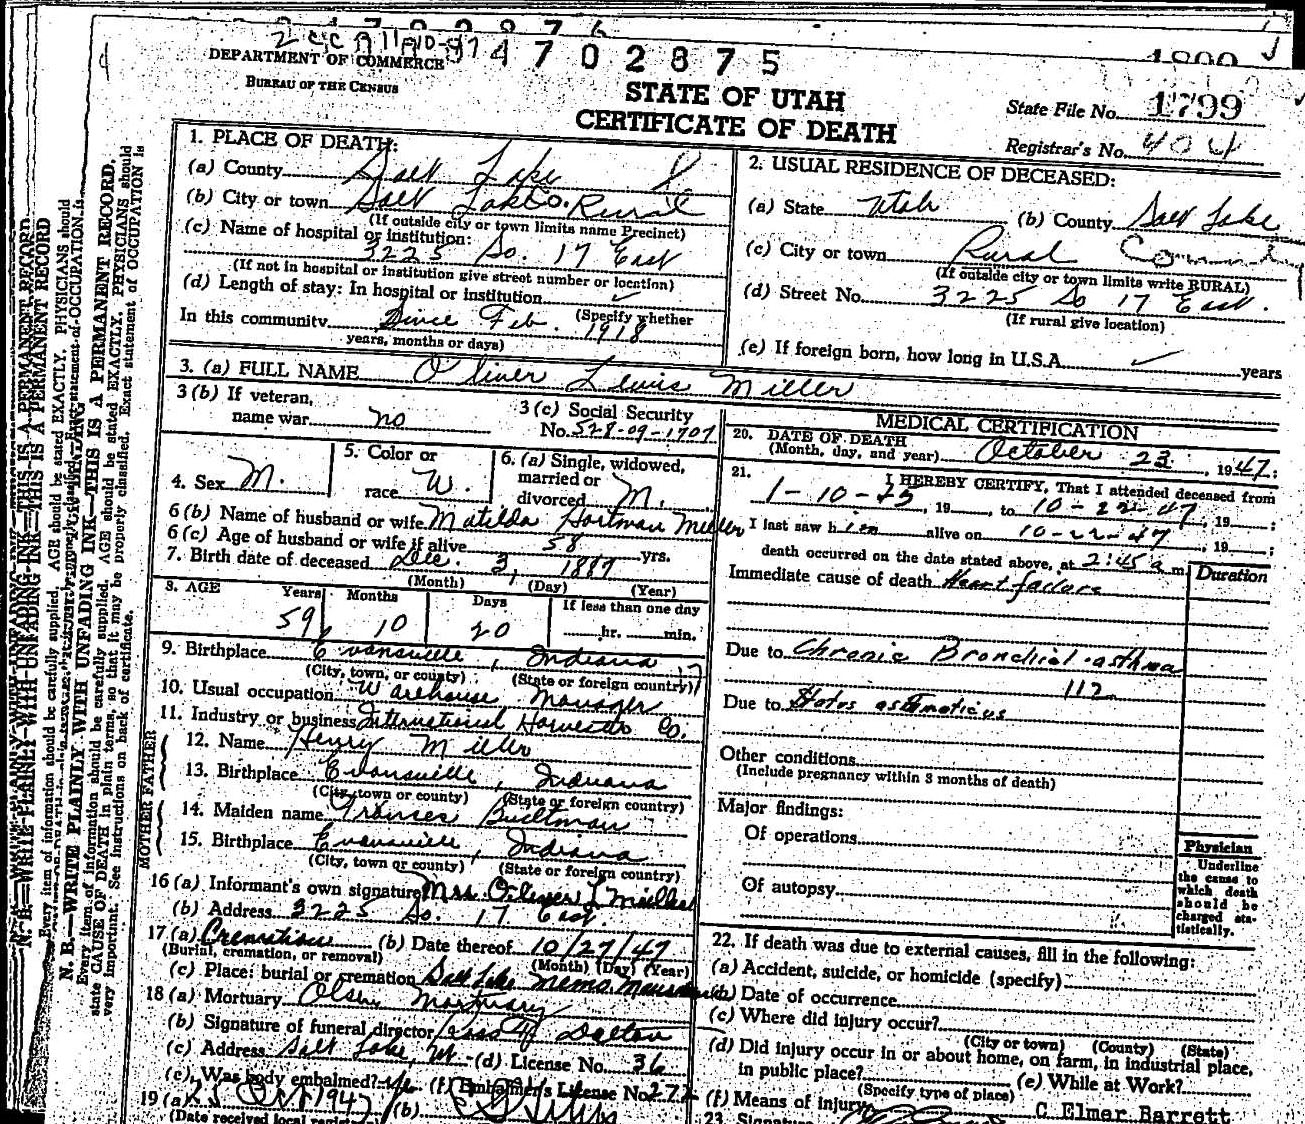 2 CCC A 11 A10-97
4702875
DEPARTMENT OF COMMERCE
BUREAU OF THE CENSUS
STATE OF UTAH
CERTIFICATE OF DEATH
State File No. 1799
Registrar's No. 404
1. PLACE OF DEATH:
(a) County Salt Lake
(b) City or town Salt Lake Co. Rural
(If outside city or town limits name Precinct)
(c) Name of hospital or institution:
3225 So. 17 East
(If not in hospital or institution give street number or location)
(d) Length of stay: In hospital or institution
(Specify whether
In this community Since Feb. 1918
years, months or days)
2. USUAL RESIDENCE OF DECEASED:
(a) State Utah (b) County Salt Lake
(c) City or town Rural
(If outside city or town limits write RURAL)
(d) Street No. 3225 So 17 East.
(If rural give location)
(e) If foreign born, how long in U.S.A. years
3. (a) FULL NAME Oliver Lewis Miller
3 (b) If veteran, name war no
3 (c) Social Security No. 528-09-1707
4. Sex M.
5. Color or race W.
6. (a) Single, widowed, married or divorced M.
6 (b) Name of husband or wife Matilda Hartman Miller
6 (c) Age of husband or wife if alive 58 yrs.
7. Birth date of deceased Dec. 3, 1887
(Month) (Day) (Year)
8. AGE Years Months Days If less than one day
59 10 20 hr. min.
9. Birthplace Evansville, Indiana 17
(City, town, or county) (State or foreign country)
10. Usual occupation Warehouse Manager
11. Industry or business International Harvester Co.
FATHER
12. Name Henry Miller
13. Birthplace Evansville, Indiana
(City, town or county) (State or foreign country)
MOTHER
14. Maiden name Frances Bueltman
15. Birthplace Evansville, Indiana
(City, town or county) (State or foreign country)
16 (a) Informant's own signature Mrs. Oliver L Miller
(b) Address 3225 So. 17 East.
17 (a) Cremation (b) Date thereof 10/27/47
(Burial, cremation, or removal) (Month) (Day) (Year)
(c) Place: burial or cremation Salt Lake Memo. Mausoleum
18 (a) Mortuary Olsen Mortuary
(b) Signature of funeral director Dalton
(c) Address Salt Lake, Ut (d) License No. 36
(e) Was body embalmed? (f) Embalmer's License No. 272
19 (a) 25 Oct 1947 (b)
(Date received local
MEDICAL CERTIFICATION
20. DATE OF DEATH
(Month, day, and year) October 23, 1947;
21. I HEREBY CERTIFY, That I attended deceased from
1-10-45, 19 , to 10-22-47, 19 ;
I last saw him alive on 10-22-47, 19 ;
death occurred on the date stated above, at 2:45 a m.
Duration
Immediate cause of death Heart failure
Due to Chronic Bronchial asthma
112
Due to Status asthmaticus
Other conditions
(Include pregnancy within 3 months of death)
Major findings:
Of operations
Of autopsy
Physician
Underline the cause to which death should be charged statistically.
22. If death was due to external causes, fill in the following:
(a) Accident, suicide, or homicide (specify)
(b) Date of occurrence
(c) Where did injury occur?
(City or town) (County) (State)
(d) Did injury occur in or about home, on farm, in industrial place,
in public place? (e) While at Work?
(Specify type of place)
(f) Means of injury
C Elmer Barrett
23. Signature
N. B.—WRITE PLAINLY WITH UNFADING INK—THIS IS A PERMANENT RECORD.
Every item of information should be carefully supplied. AGE should be stated EXACTLY. PHYSICIANS should
state CAUSE OF DEATH in plain terms, so that it may be properly classified. Exact statement of OCCUPATION is
very important. See instructions on back of certificate.